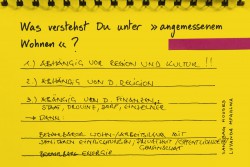 Was verstehst Du unter »angemessenem
Wohnen«?
1.) ABHÄNGIG VOR REGION UND KULTUR !!
2.) ABHÄNGIG VON D. RELIGION
3.) ABHÄNGIG VON D. FINANZEN
STADT, PROVINZ, DORF, EINZELNE
→ DANN:
BEZAHLBARER WOHN-/ARBEITSRAUM MIT
SANITÄREN EINRICHTUNGEN, PRIVATHEIT/ÖFFENTLICHKEIT
GEMEINSCHAFT
BEZAHLBARE ENERGIE